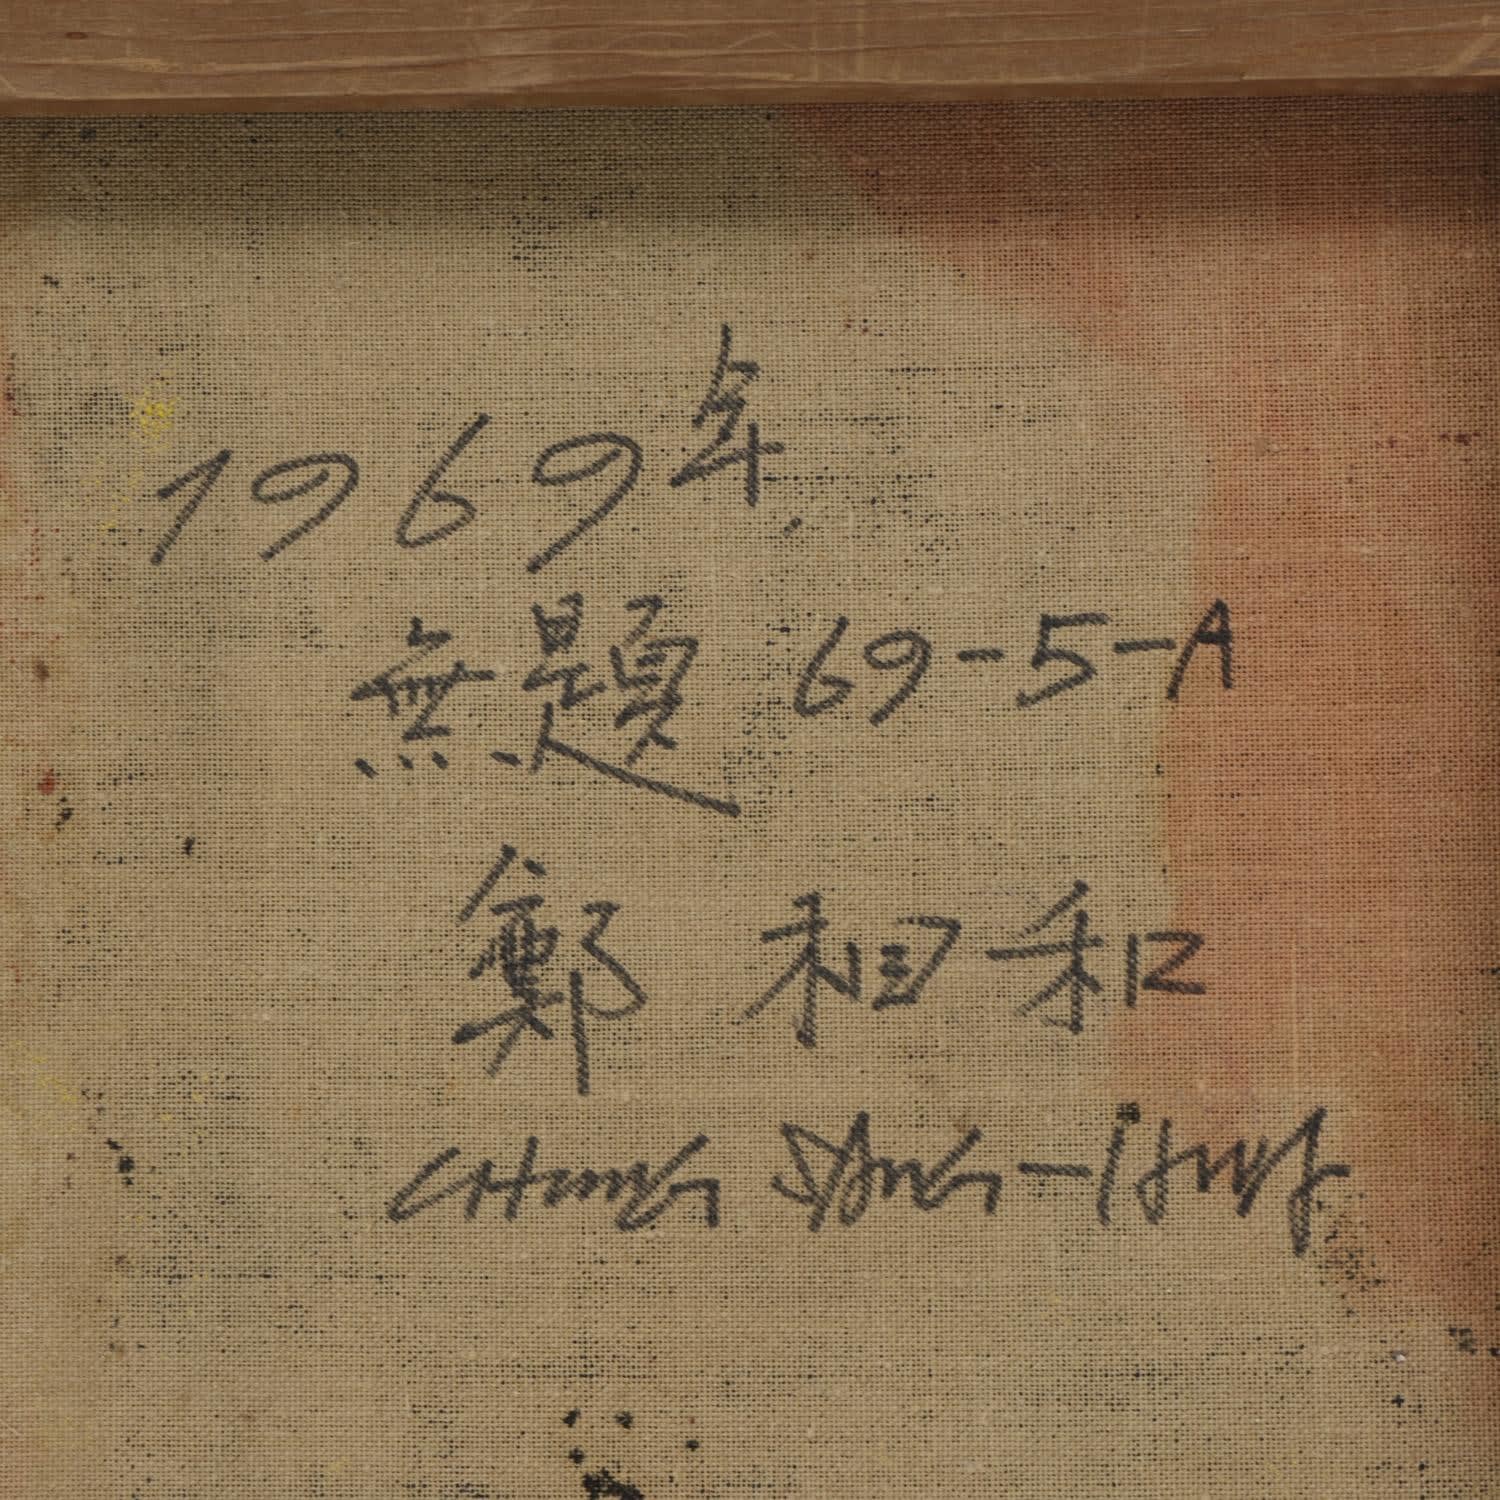 1969年.
無題 69-5-A
鄭 相和
CHUNG SANG-HWA